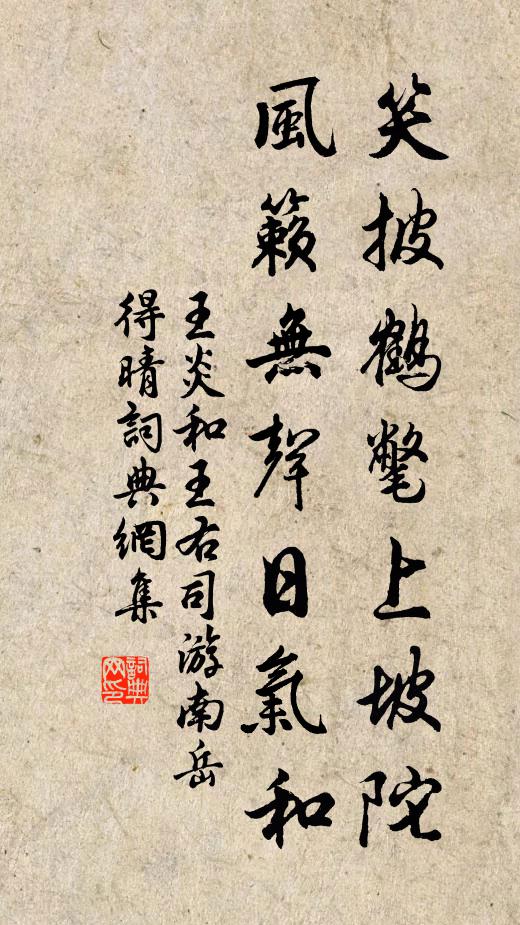 笑披鶴氅上坡陀
風籟無聲日氣和
王炎和王右司游南岳
得晴詞典網集
詞典网印